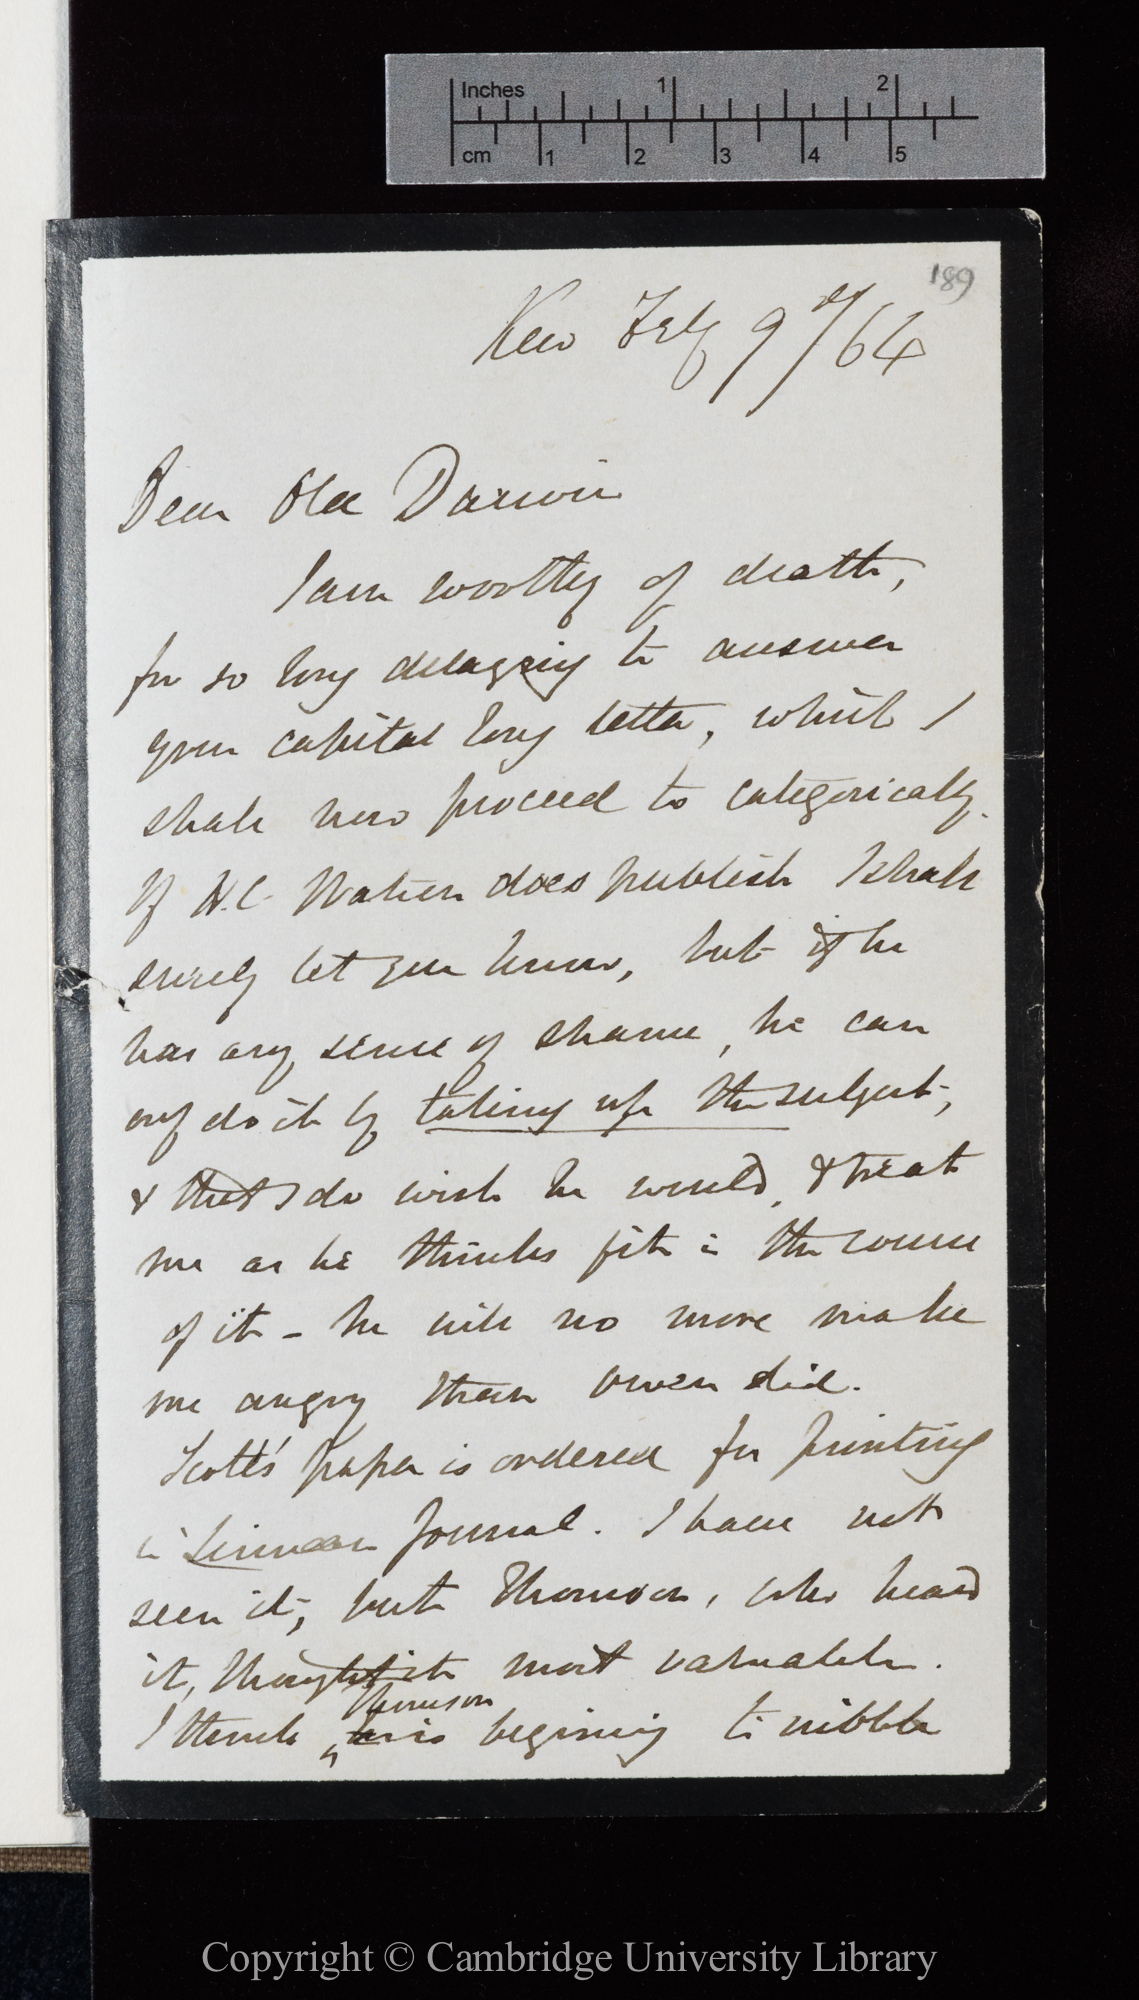 Inches 1 2
cm 1 2 3 4 5
189
Kew Feby 9th/64
Dear Old Darwin
I am worthy of death,
for so long delaying to answer
your capital long letter, which I
shall now proceed to categorically.
If H.C. Watson does publish I shall
surely let you know, but if he
has any sense of shame, he can
only do it by taking up the subject,
& that I do wish he would, & treat
me as he thinks fit in the course
of it – he will no more make
me angry than Owen did.
Scott's paper is ordered for printing
in Linnean Journal. I have not
seen it, but Thomson, who heard
it, thought it most valuable.
Thomson
I think he is begining to nibble
Copyright © Cambridge University Library